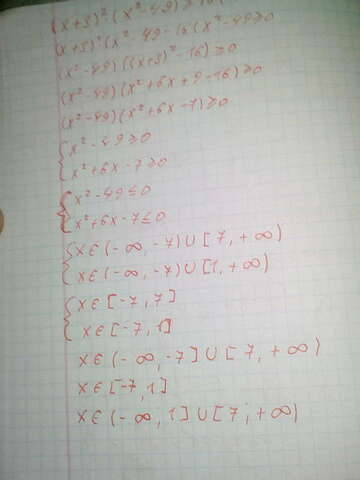 (x+3)²·(x²-49)≥
(x+3)²(x²-49-16(x²-49≥0
(x²-49)((x+3)²-16)≥0
(x²-49)(x²+6x+9-16)≥0
(x²-49)(x²+6x-7)≥0
{x²-49≥0
x²+6x-7≥0
{x²-49≤0
x²+6x-7≤0
{x∈(-∞,-7)∪[7,+∞)
x∈(-∞,-7)∪[1,+∞)
{x∈[-7,7]
x∈[-7,1]
x∈(-∞,-7]∪[7,+∞)
x∈[-7,1]
x∈(-∞,1]∪[7,+∞)